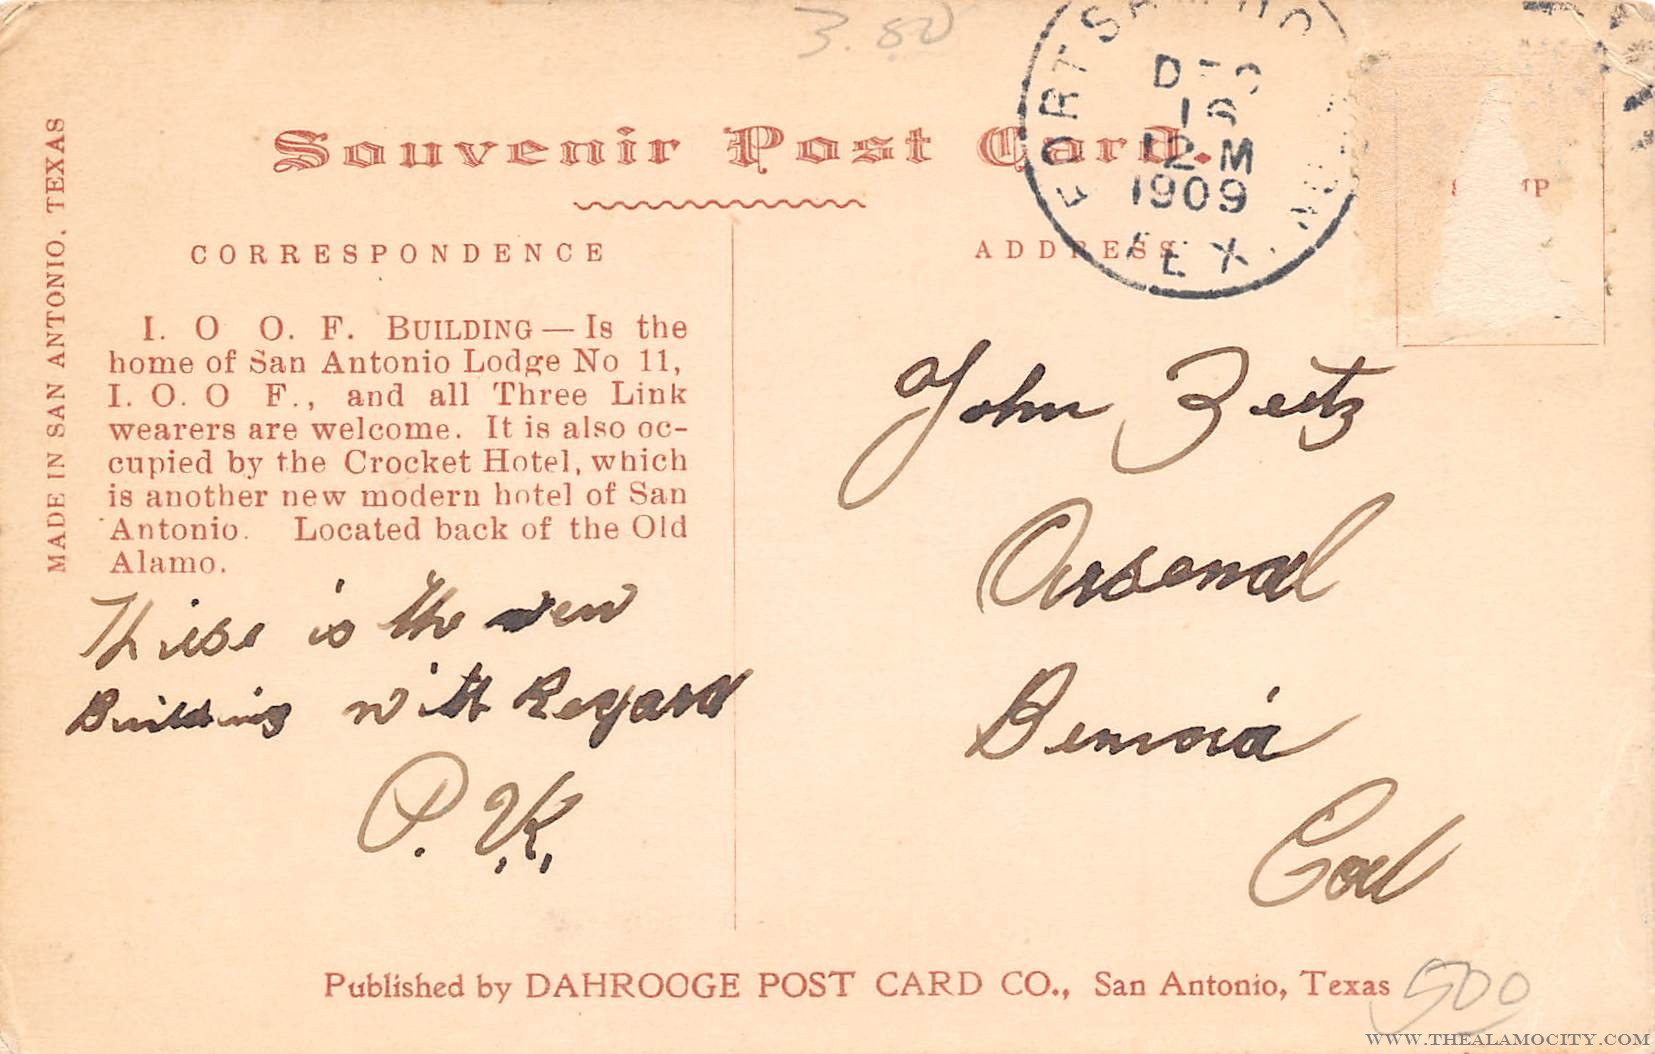 3.80
FORT SAM HOUSTON
DEC
10
12 M
1909
TEX.
Souvenir Post Card.
MADE IN SAN ANTONIO, TEXAS
CORRESPONDENCE
I. O O. F. BUILDING — Is the
home of San Antonio Lodge No 11,
I. O. O F., and all Three Link
wearers are welcome. It is also oc-
cupied by the Crocket Hotel, which
is another new modern hotel of San
Antonio. Located back of the Old
Alamo.
Thise is the new
Building with Regard
P. K.
ADDRESS
John Zeitz
Arsenal
Benicia
Cal
Published by DAHROOGE POST CARD CO., San Antonio, Texas
500
WWW.THEALAMOCITY.COM